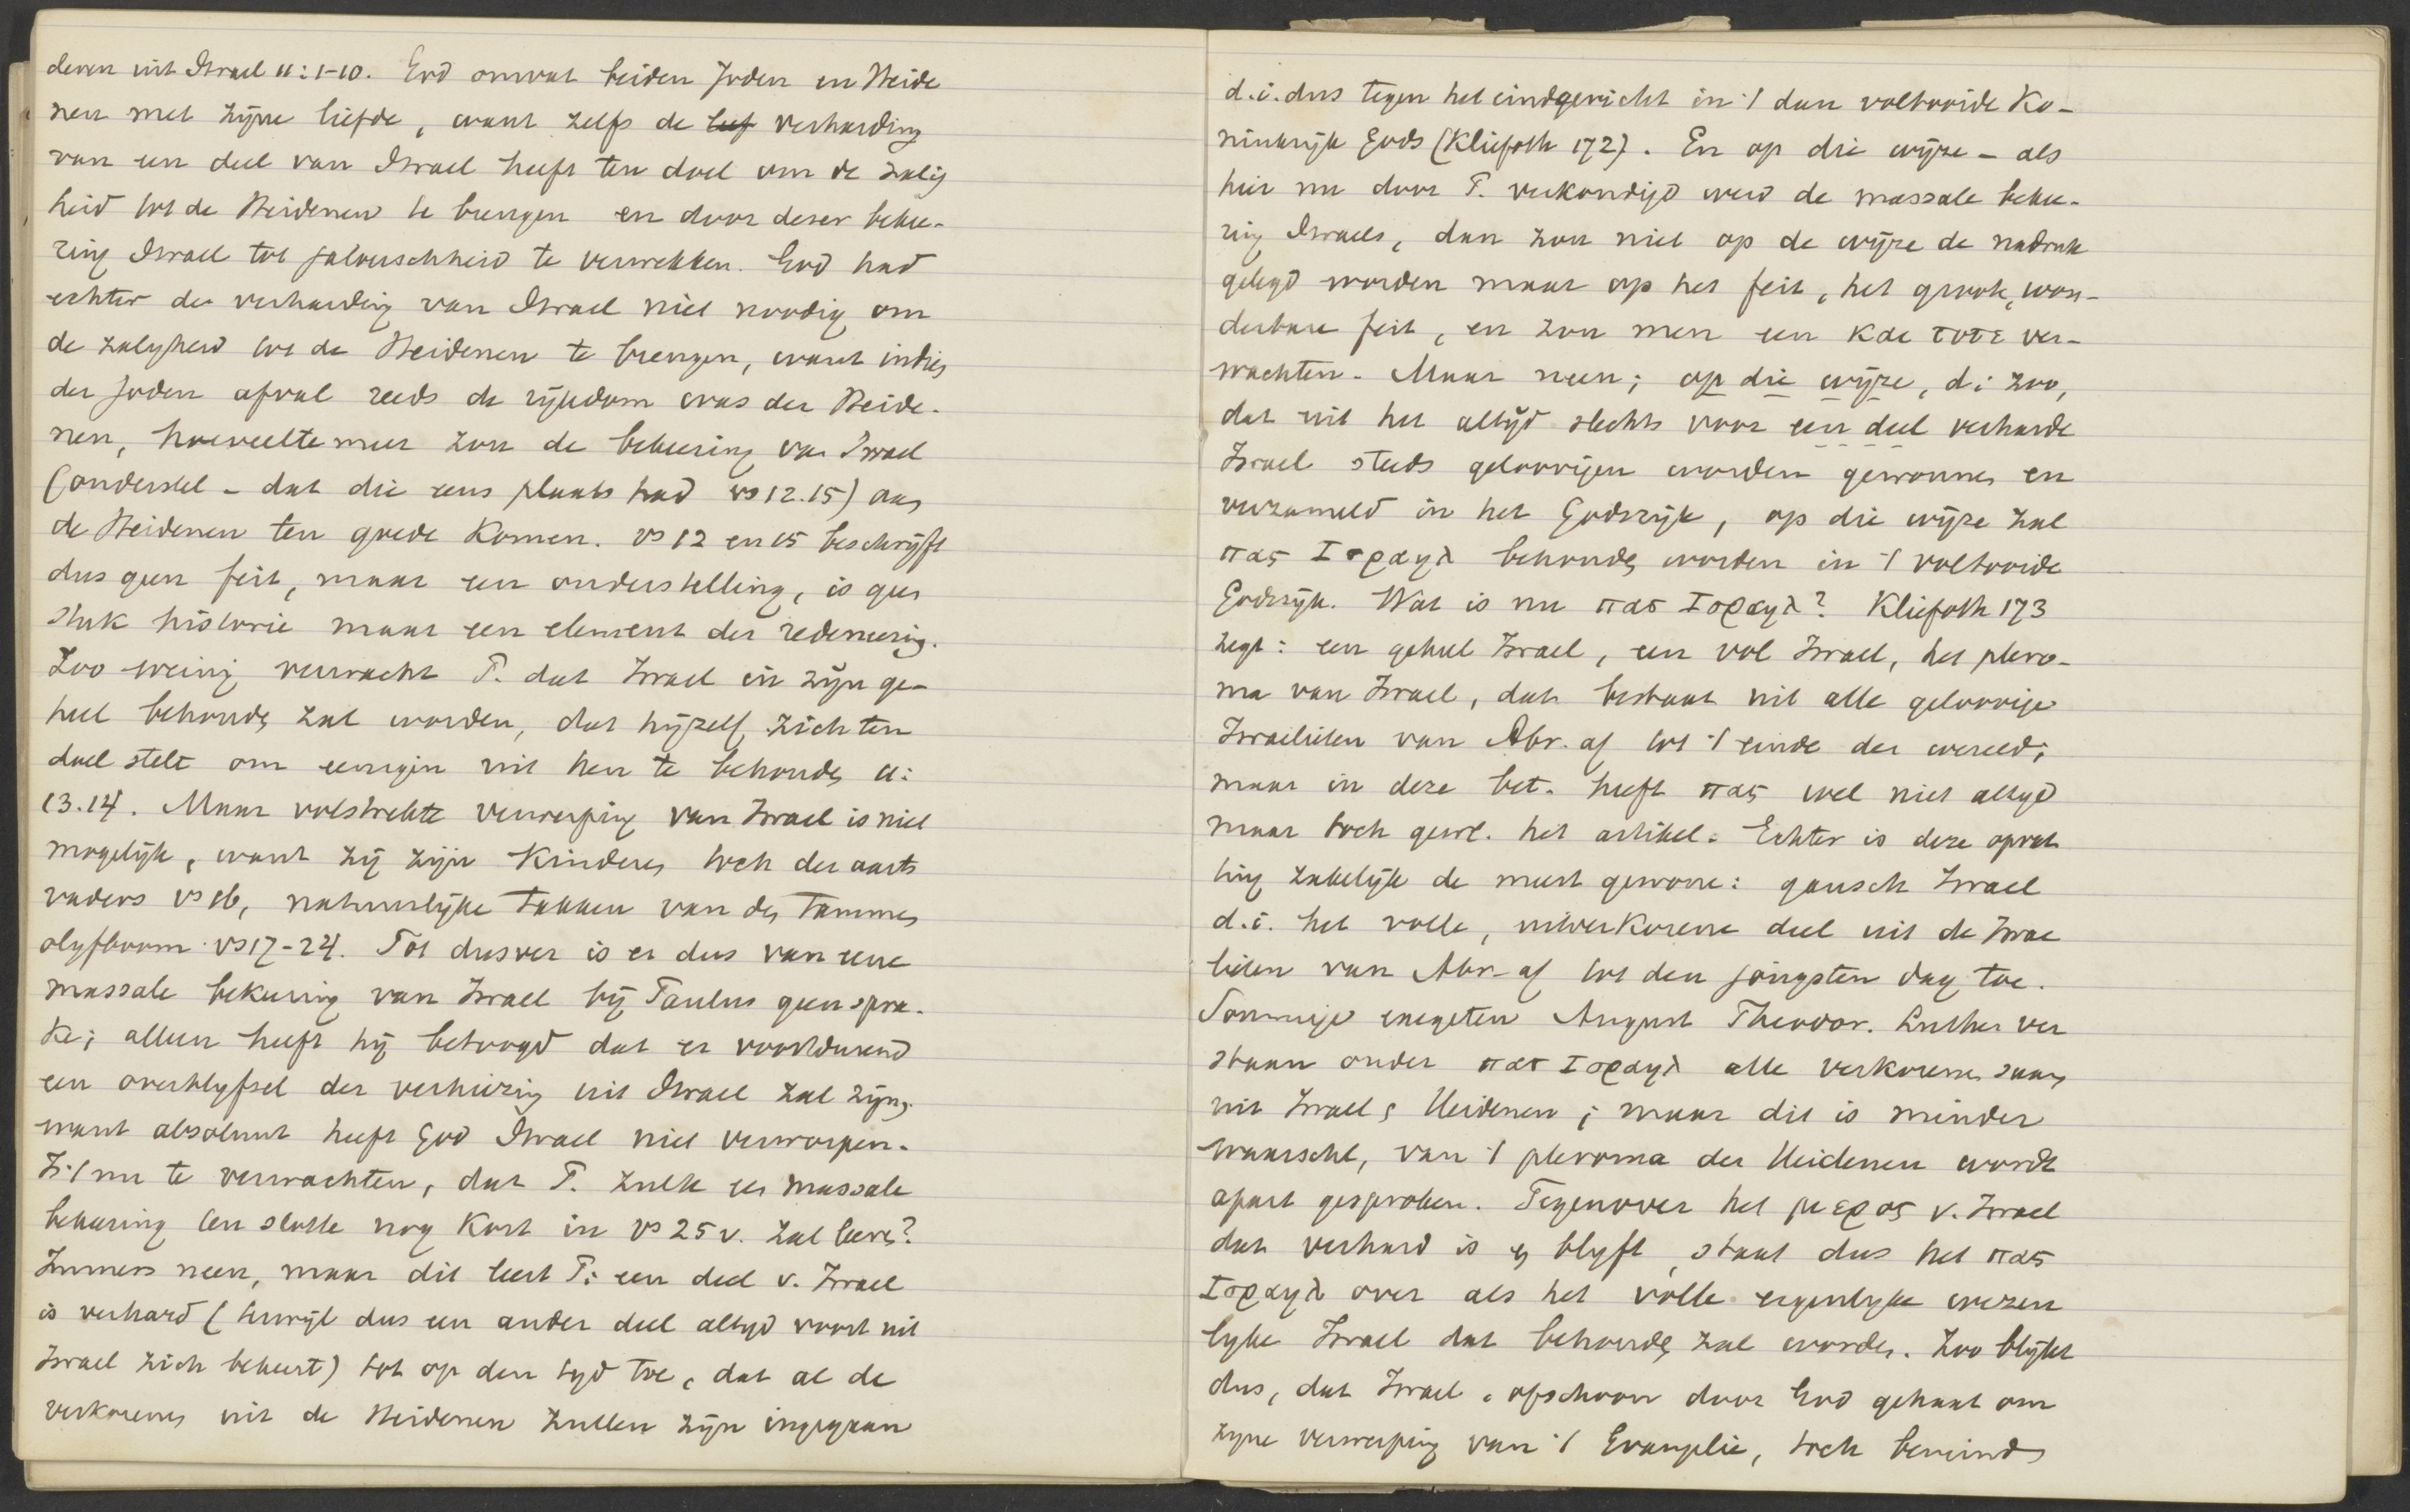 deren uit Israel 11:1-10. God omvat beiden Joden en Heide
nen met zijne liefde, want zelfs de lief verharding
van een deel van Israel heeft ten doel om de zalig
heid tot de Heidenen te brengen en door dezer bekee-
ring Israel tot jalouschheid te verwekken. God had
echter de verharding van Israel niet noodig om
de zaligheid tot de Heidenen te brengen, want indien
der Joden afval reeds de rijkdom was der Heide-
nen, hoeveelte meer zou de bekeering van Israel
(ondersteld - dat die eens plaats had vs 12.15) aan
de Heidenen ten goede komen. vs 12 en 15 beschrijft
dus geen feit, maar een onderstelling, is geen
stuk historie maar een element der redeneering.
Zoo weinig verwacht P. dat Israel in zijn ge-
heel behouden zal worden, dat hijzelf zich ten
doel stelt om eenigen uit hen te behouden 11:
13.14. Maar volstrekte verwerping van Israel is niet
mogelijk, want zij zijn kinderen toch der aarts
vaders vs 16, natuurlijke takken van den tammen
olijfboom vs 17-24. Tot dusver is er dus van eene
massale bekeering van Israel bij Paulus geen spra-
ke; alleen heeft hij betoogd dat er voortdurend
een overblijfsel der verkiezing uit Israel zal zijn,
want absoluut heeft God Israel niet verworpen.
Is 't nu te verwachten, dat P. zulk een massale
bekeering ten slotte nog kort in vs 25 v. zal leeren?
Immers neen, maar dit leert P: een deel v. Israel
is verhard (terwijl dus een ander deel altijd voort uit
Israel zich bekeert) tot op den tijd toe, dat al de
verkorenen uit de Heidenen zullen zijn ingegaan
d.i. dus tegen het eindgericht in 't dan voltooide Ko-
ninkrijk Gods (Kliefoth 172). En op die wijze - als
hier nu door P. verkondigd werd de massale bekee-
ring Israels, dan zou niet op de wijze de nadruk
gelegd worden maar op het feit, het groote, won-
derbare feit, en zou men een και τοτε ver-
wachten. Maar neen; op die wijze, d.i. zoo,
dat uit het altijd slechts voor een deel verharde
Israel steeds geloovigen worden gewonnen en
verzameld in het Godsrijk, op die wijze zal
πας Ισραηλ behouden worden in 't voltooide
Godsrijk. Wat is nu πας Ισραηλ? Kliefoth 173
zegt: een geheel Israel, een vol Israel, het plero-
ma van Israel, dat bestaat uit alle geloovige
Israelieten van Abr. af tot 't einde der wereld;
maar in deze bet. heeft πας wel niet altijd
maar toch gewl. het artikel. Echter is deze opvat
ting zakelijk de meest gewone: gansch Israel
d.i. het volle, uitverkorene deel uit de Israe
lieten van Abr. af tot den jongsten dag toe.
Sommige exegeten August Theodor. Luther ver
staan onder πας Ισραηλ alle verkorenen saam
uit Israel & Heidenen; maar dit is minder
waarschl, van 't pleroma der Heidenen wordt
apart gesproken. Tegenover het μερος v. Israel
dat verhard is en blijft, staat dus het πας
Ισραηλ over als het volle eigenlijke wezen
lijke Israel dat behouden zal worden. Zoo blijkt
dus, dat Israel, ofschoon door God gehaat om
zijne verwerping van 't Evangelie, toch bemind